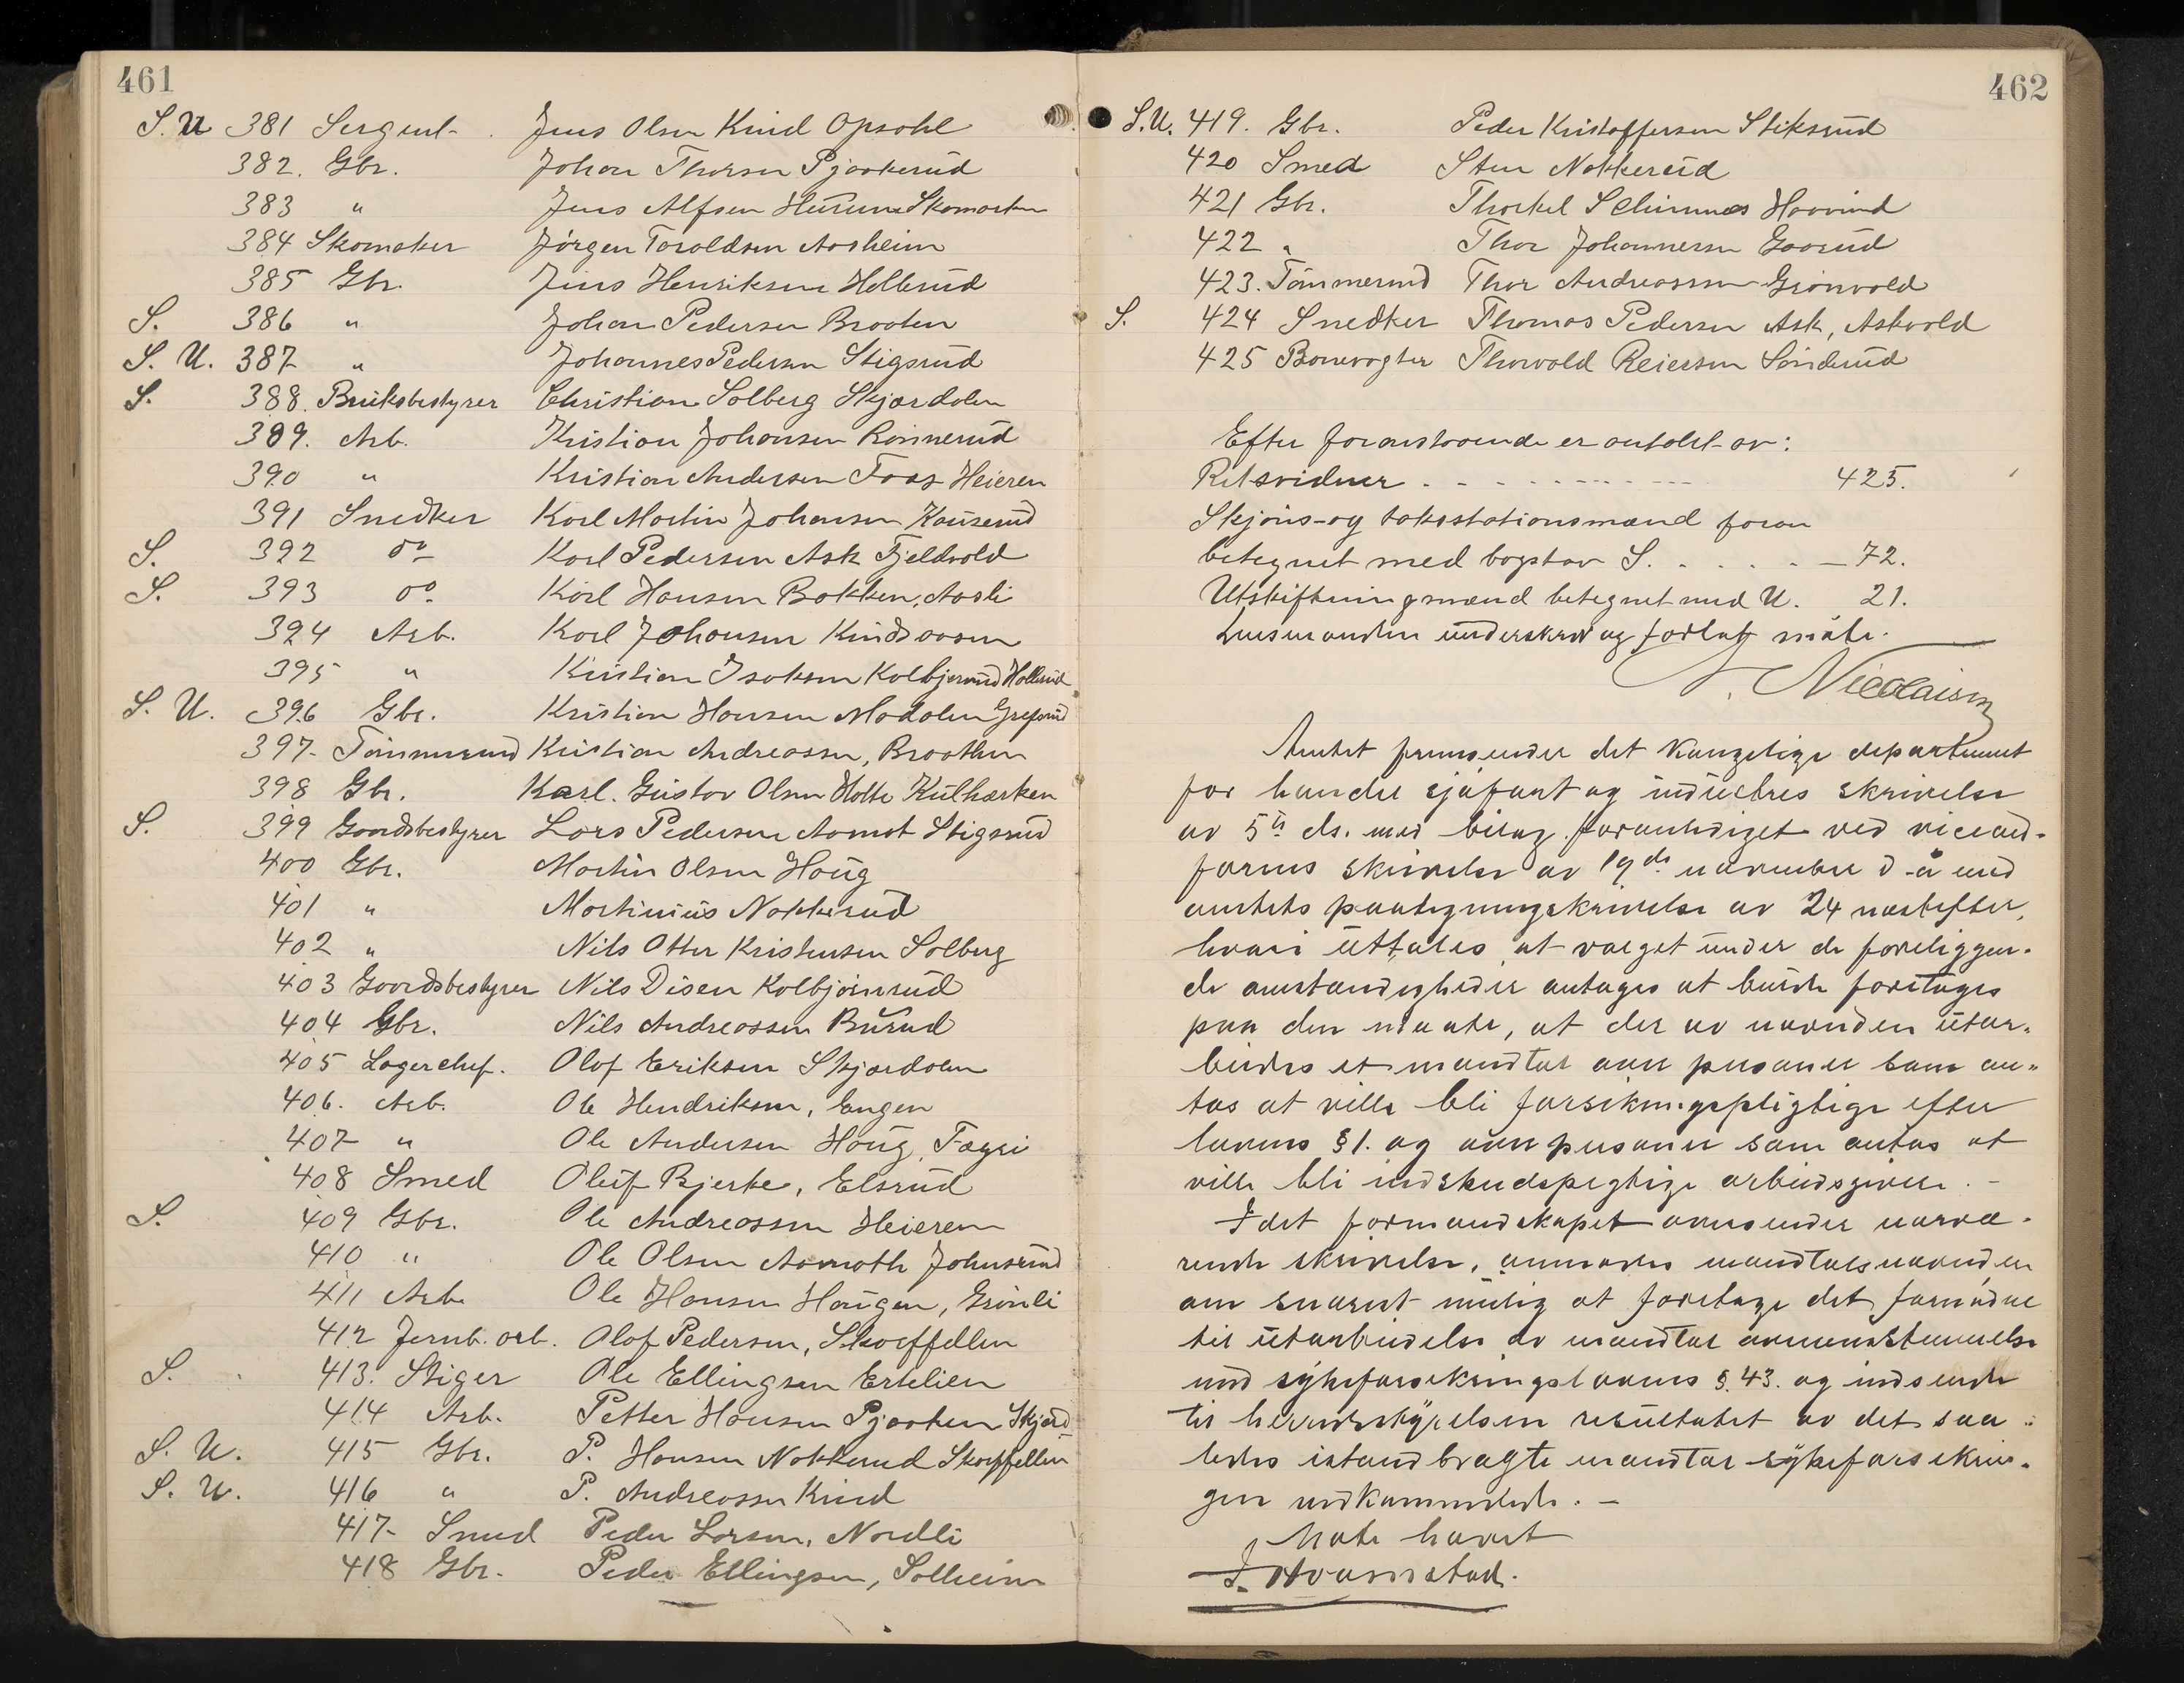 461
S. U 381 Sergent Jens Olsen Kind Opsahl
382. Gbr. Johan Thorsen Pjaakerud
383 " Jens Alfsen Hurum Skomaken
384 Skomaker Jörgen Taraldsen Aasheim
385 Gbr. Jens Henriksen Hellerud
S. 386 " Johan Pedersen Braaten
S. U. 387 " Johannes Pedersen Stigsrud
S. 388. Bruksbestyrer Christian Solberg Skjærdalen
389. Arb. Kristian Johansen Rönnerud
390 " Kristian Andersen Foss Heieren
391 Snedker Karl Martin Johansen Kauserud
S. 392 do Karl Pedersen Ask Fjeldvold
S. 393 do Karl Hansen Bakken, Aasli
394 Arb. Karl Johansen Kindsaasen
395 " Kristian Isaksen Kolbjernrud Hollerud
S. U. 396 Gbr. Kristian Hansen Modalen Grefsrud
397- Tömmermd Kristian Andreassen, Braathen
398 Gbr. Karl. Gustav Olsen Holte Kulhærken
S. 399 Gaardsbestyrer Lars Pedersen Aamot Stigsrud
400 Gbr. Martin Olsen Haug
401 " Martinius Nakkerud
402 " Nils Otter Kristensen Solberg
403 Gaardsbestyrer Nils Disen Kolbjörnsrud
404 Gbr. Nils Andreassen Burud
405 Lagerchef. Olaf Eriksen Skjærdalen
406. Arb. Ole Hendriksen, Engen
407 " Ole Andersen Haug, Fagri
408 Smed Oluf Bjerke, Elsrud
S. 409 Gbr. Ole Andreassen Heieren
410 " Ole Olsen Aamoth Johnsrud
411 Arb. Ole Hansen Haugen, Grönli
412 Jernb. arb. Olaf Pedersen, Skoeffellen
S. 413. Stiger Ole Ellingsen Ertelien
414 Arb. Petter Hansen Pjaaken Skjærd
S. U. 415 Gbr. P. Hansen Nakkerud Skoeffellen
S. U. 416 " P. Andreassen Kind
417- Smed Peder Larsen, Nordli
418 Gbr. Peder Ellingsen, Solheim
462
S. U. 419. Gbr. Peder Kristoffersen Stiksrud
420 Smed Sten Nakkerud
421 Gbr. Thorkel Schinnes Haavind
422 " Thor Johannessen Gaasrud
423. Tömmermd Thor Andreassen Grönvold
S. 424 Snedker Thomas Pedersen Ask, Askvold
425 Banevogter Thorvald Reiersen Sönderud
Efter foranstaaende er antalet av:
Retsvidner . - - - - - - - - 425.
Skjöns- og takstationsmænd foran
betegnet med bogstav S. . . . . - 72.
Utskiftningsmænd betegnet med U. 21.
Lensmanden underskrev og forlot möte.
Nicolaisen
Amtet fremsender det kongelige departement
for handel sjöfart og industris skrivelse
av 5te ds. med bilag foranlediget ved viceord-
førers skrivelse av 19de november d. å med
amtets paategningskrivelse av 24 næstefter,
hvori uttales at valget under de foreliggen-
de omstændigheder antages at burde foretages
paa den maate, at der av nævnden utar-
beides et mandtal over personer som an-
tas at ville bli forsikringspligtige efter
lovens § 1. og over personer som antas at
ville bli indskudspligtige arbeidsgivere. -
Idet formandskapet oversender nærvæ-
rende skrivelse, anmodes mandtalsnævnden
om snarest mulig at foretage det fornödne
til utarbeidelse av mandtal overensstemmelse
med sykeforsikringslovens §. 43. og indsende
til herredsstyrelsen resultatet av det saa-
ledes istandbragte mandtal sykeforsikrin-
gen vedkommende. -
Møte hævet